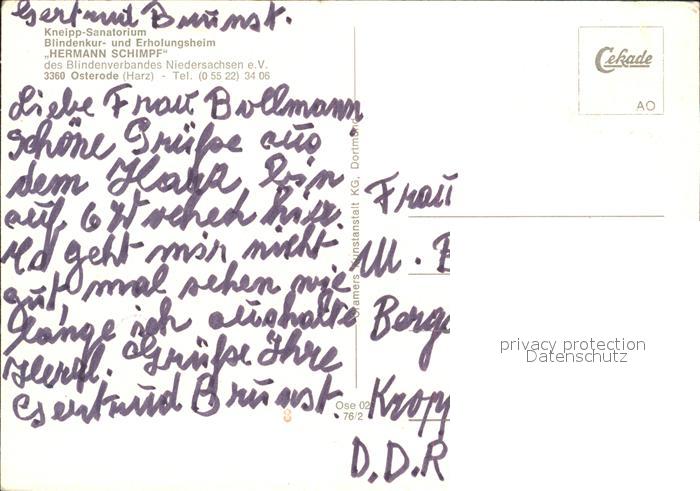 Gertrud Brunst.
Kneipp-Sanatorium
Blindenkur- und Erholungsheim
„HERMANN SCHIMPF“
des Blindenverbandes Niedersachsen e.V.
3360 Osterode (Harz) - Tel. (0 55 22) 34 06
Liebe Frau Bollmann
schöne Grüße aus
dem Harz bin
auf 6 Wochen hier.
es geht mir nicht
gut, mal sehen wie
lange ich aushalte
Herzl. Grüße Ihre
Gertrud Brunst.
Cramers Kunstanstalt KG, Dortmund
Ose 02
76/2
8
Cekade
AO
Frau
M. B
Berge
Kropp
D.D.R
privacy protection
Datenschutz